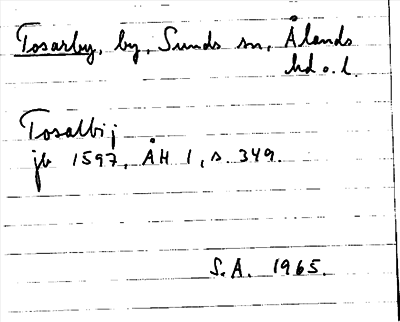 Tosarby, by, Sunds sn, Ålands
hd o. l.
Tosalbij
jb 1597, ÅH 1, s. 349.
S.A. 1965.